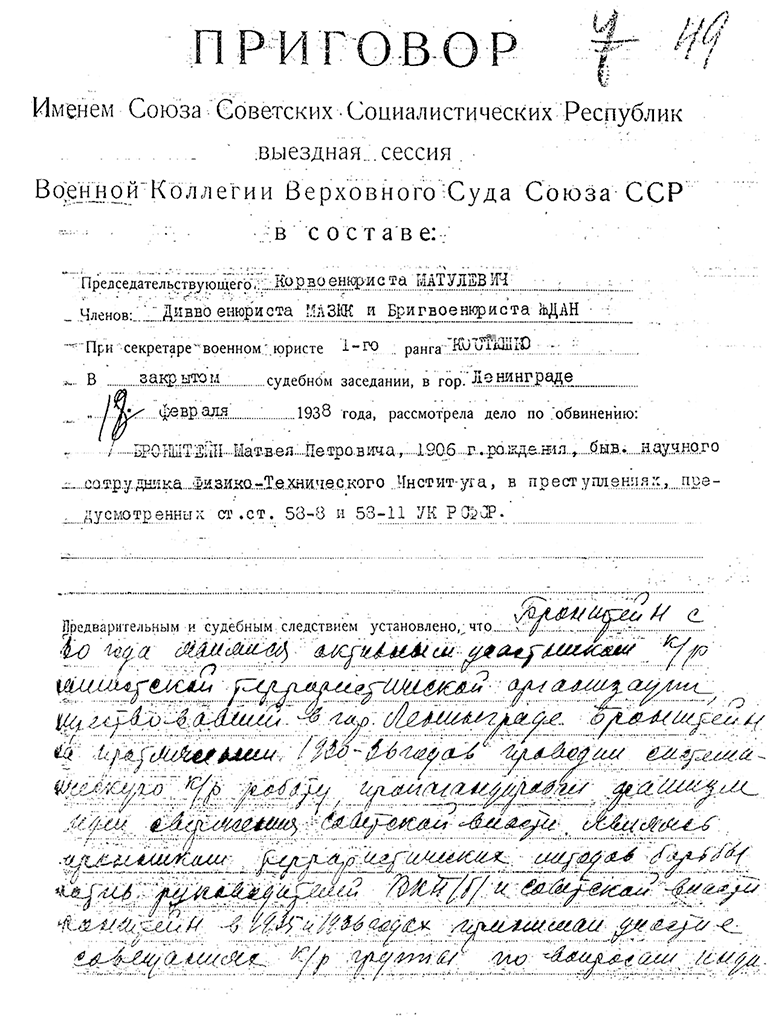 ПРИГОВОР
7 49
Именем Союза Советских Социалистических Республик
выездная сессия
Военной Коллегии Верховного Суда Союза ССР
в составе:
Председательствующего Корвоенюриста МАТУЛЕВИЧ
Членов: Диввоенюриста МАЗЮК и Бригвоенюриста ЖДАН
При секретаре военном юристе 1-го ранга КОСТЮШКО
В закрытом судебном заседании, в гор. Ленинграде
"18" февраля 1938 года, рассмотрела дело по обвинению:
БРОНШТЕЙН Матвея Петровича, 1906 г.рождения, быв. научного
сотрудника Физико-Технического Института, в преступлениях, пре-
дусмотренных ст.ст. 58-8 и 58-11 УК РСФСР.
Предварительным и судебным следствием установлено, что Бронштейн с
30 года являлся активным участником к/р
шистской террористической организации,
ществовавшей в гор. Ленинграде. Бронштейн
на протяжении 1930-36 годов проводил система-
ческую к/р работу, пропагандировал фашизм
идеи свержения советской власти. Являясь
оронником террористических методов борьбы
ротив руководителей ВКП(б) и советской власти
ронштейн в 1935 и 1936 годах принимал участие
совещаниях к/р группы по вопросам инди